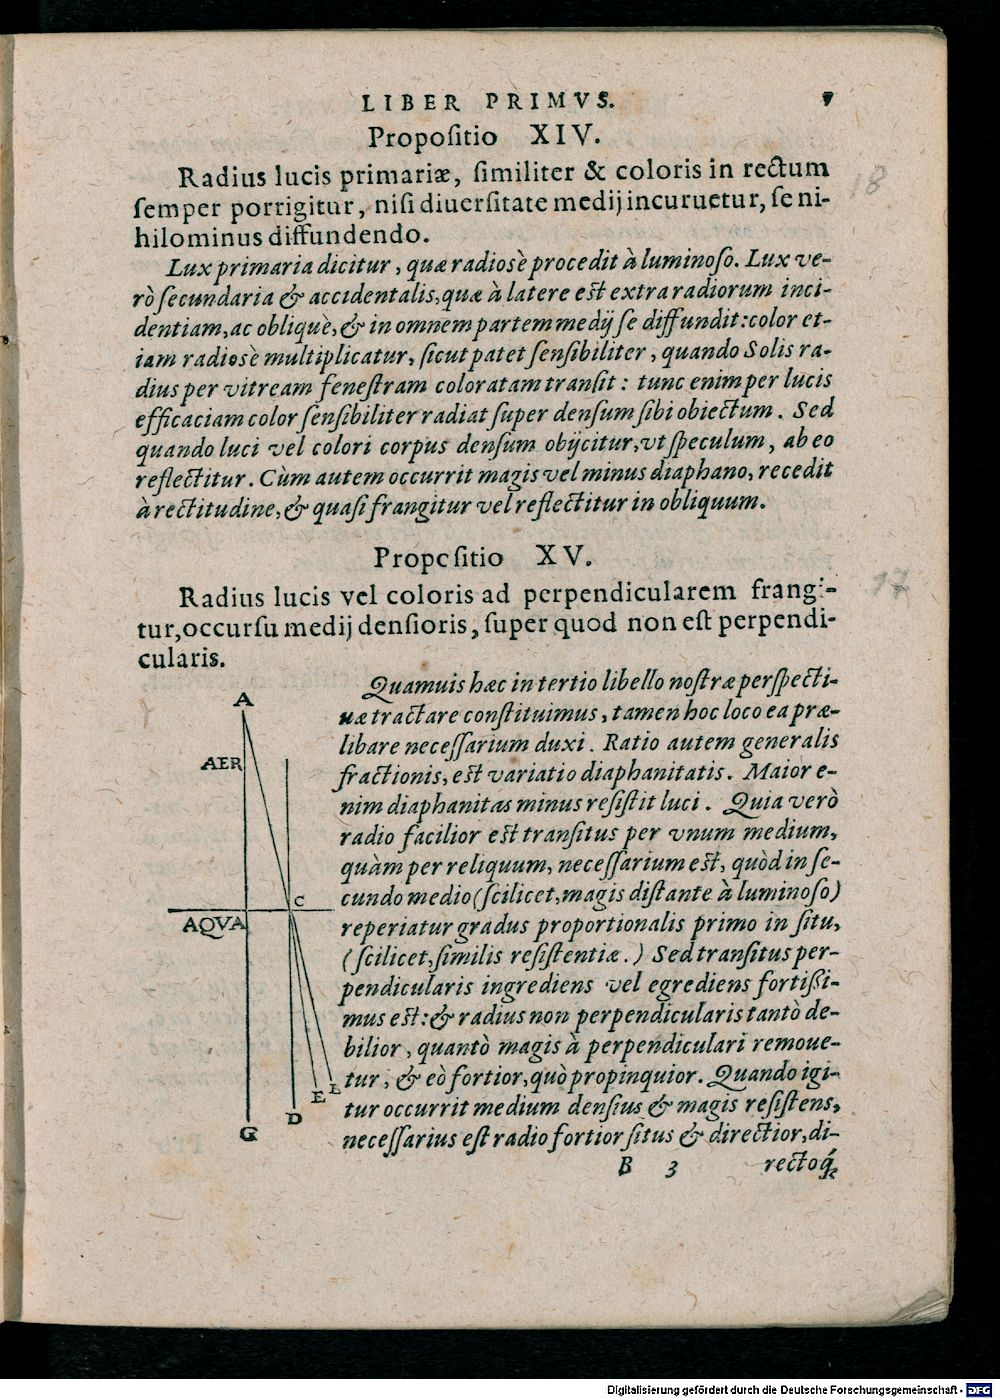 LIBER PRIMVS. 7
Propositio XIV.
Radius lucis primariæ, similiter & coloris in rectum
semper porrigitur, nisi diuersitate medij incuruetur, se ni-
hilominus diffundendo.
18
Lux primaria dicitur, quæ radiosè procedit à luminoso. Lux ve-
rò secundaria & accidentalis, quæ à latere est extra radiorum inci-
dentiam, ac obliquè, & in omnem partem medij se diffundit: color et-
iam radiosè multiplicatur, sicut patet sensibiliter, quando Solis ra-
dius per vitream fenestram coloratam transit: tunc enim per lucis
efficaciam color sensibiliter radiat super densum sibi obiectum. Sed
quando luci vel colori corpus densum obijcitur, vt speculum, ab eo
reflectitur. Cùm autem occurrit magis vel minus diaphano, recedit
à rectitudine, & quasi frangitur vel reflectitur in obliquum.
Propositio XV.
Radius lucis vel coloris ad perpendicularem frangi-
tur, occursu medij densioris, super quod non est perpendi-
cularis.
17
Quamuis hæc in tertio libello nostræ perspecti-
uæ tractare constituimus, tamen hoc loco ea præ-
libare necessarium duxi. Ratio autem generalis
fractionis, est variatio diaphanitatis. Maior e-
nim diaphanitas minus resistit luci. Quia verò
radio facilior est transitus per vnum medium,
quàm per reliquum, necessarium est, quòd in se-
cundo medio (scilicet, magis distante à luminoso)
reperiatur gradus proportionalis primo in situ,
(scilicet, similis resistentiæ.) Sed transitus per-
pendicularis ingrediens vel egrediens fortißi-
mus est: & radius non perpendicularis tantò de-
bilior, quantò magis à perpendiculari remoue-
tur, & eò fortior, quò propinquior. Quando igi-
tur occurrit medium densius & magis resistens,
necessarius est radio fortior situs & directior, di-
B 3 rectoq́;
A
AER
C
AQVA
E L
D
G
Digitalisierung gefördert durch die Deutsche Forschungsgemeinschaft - DFG